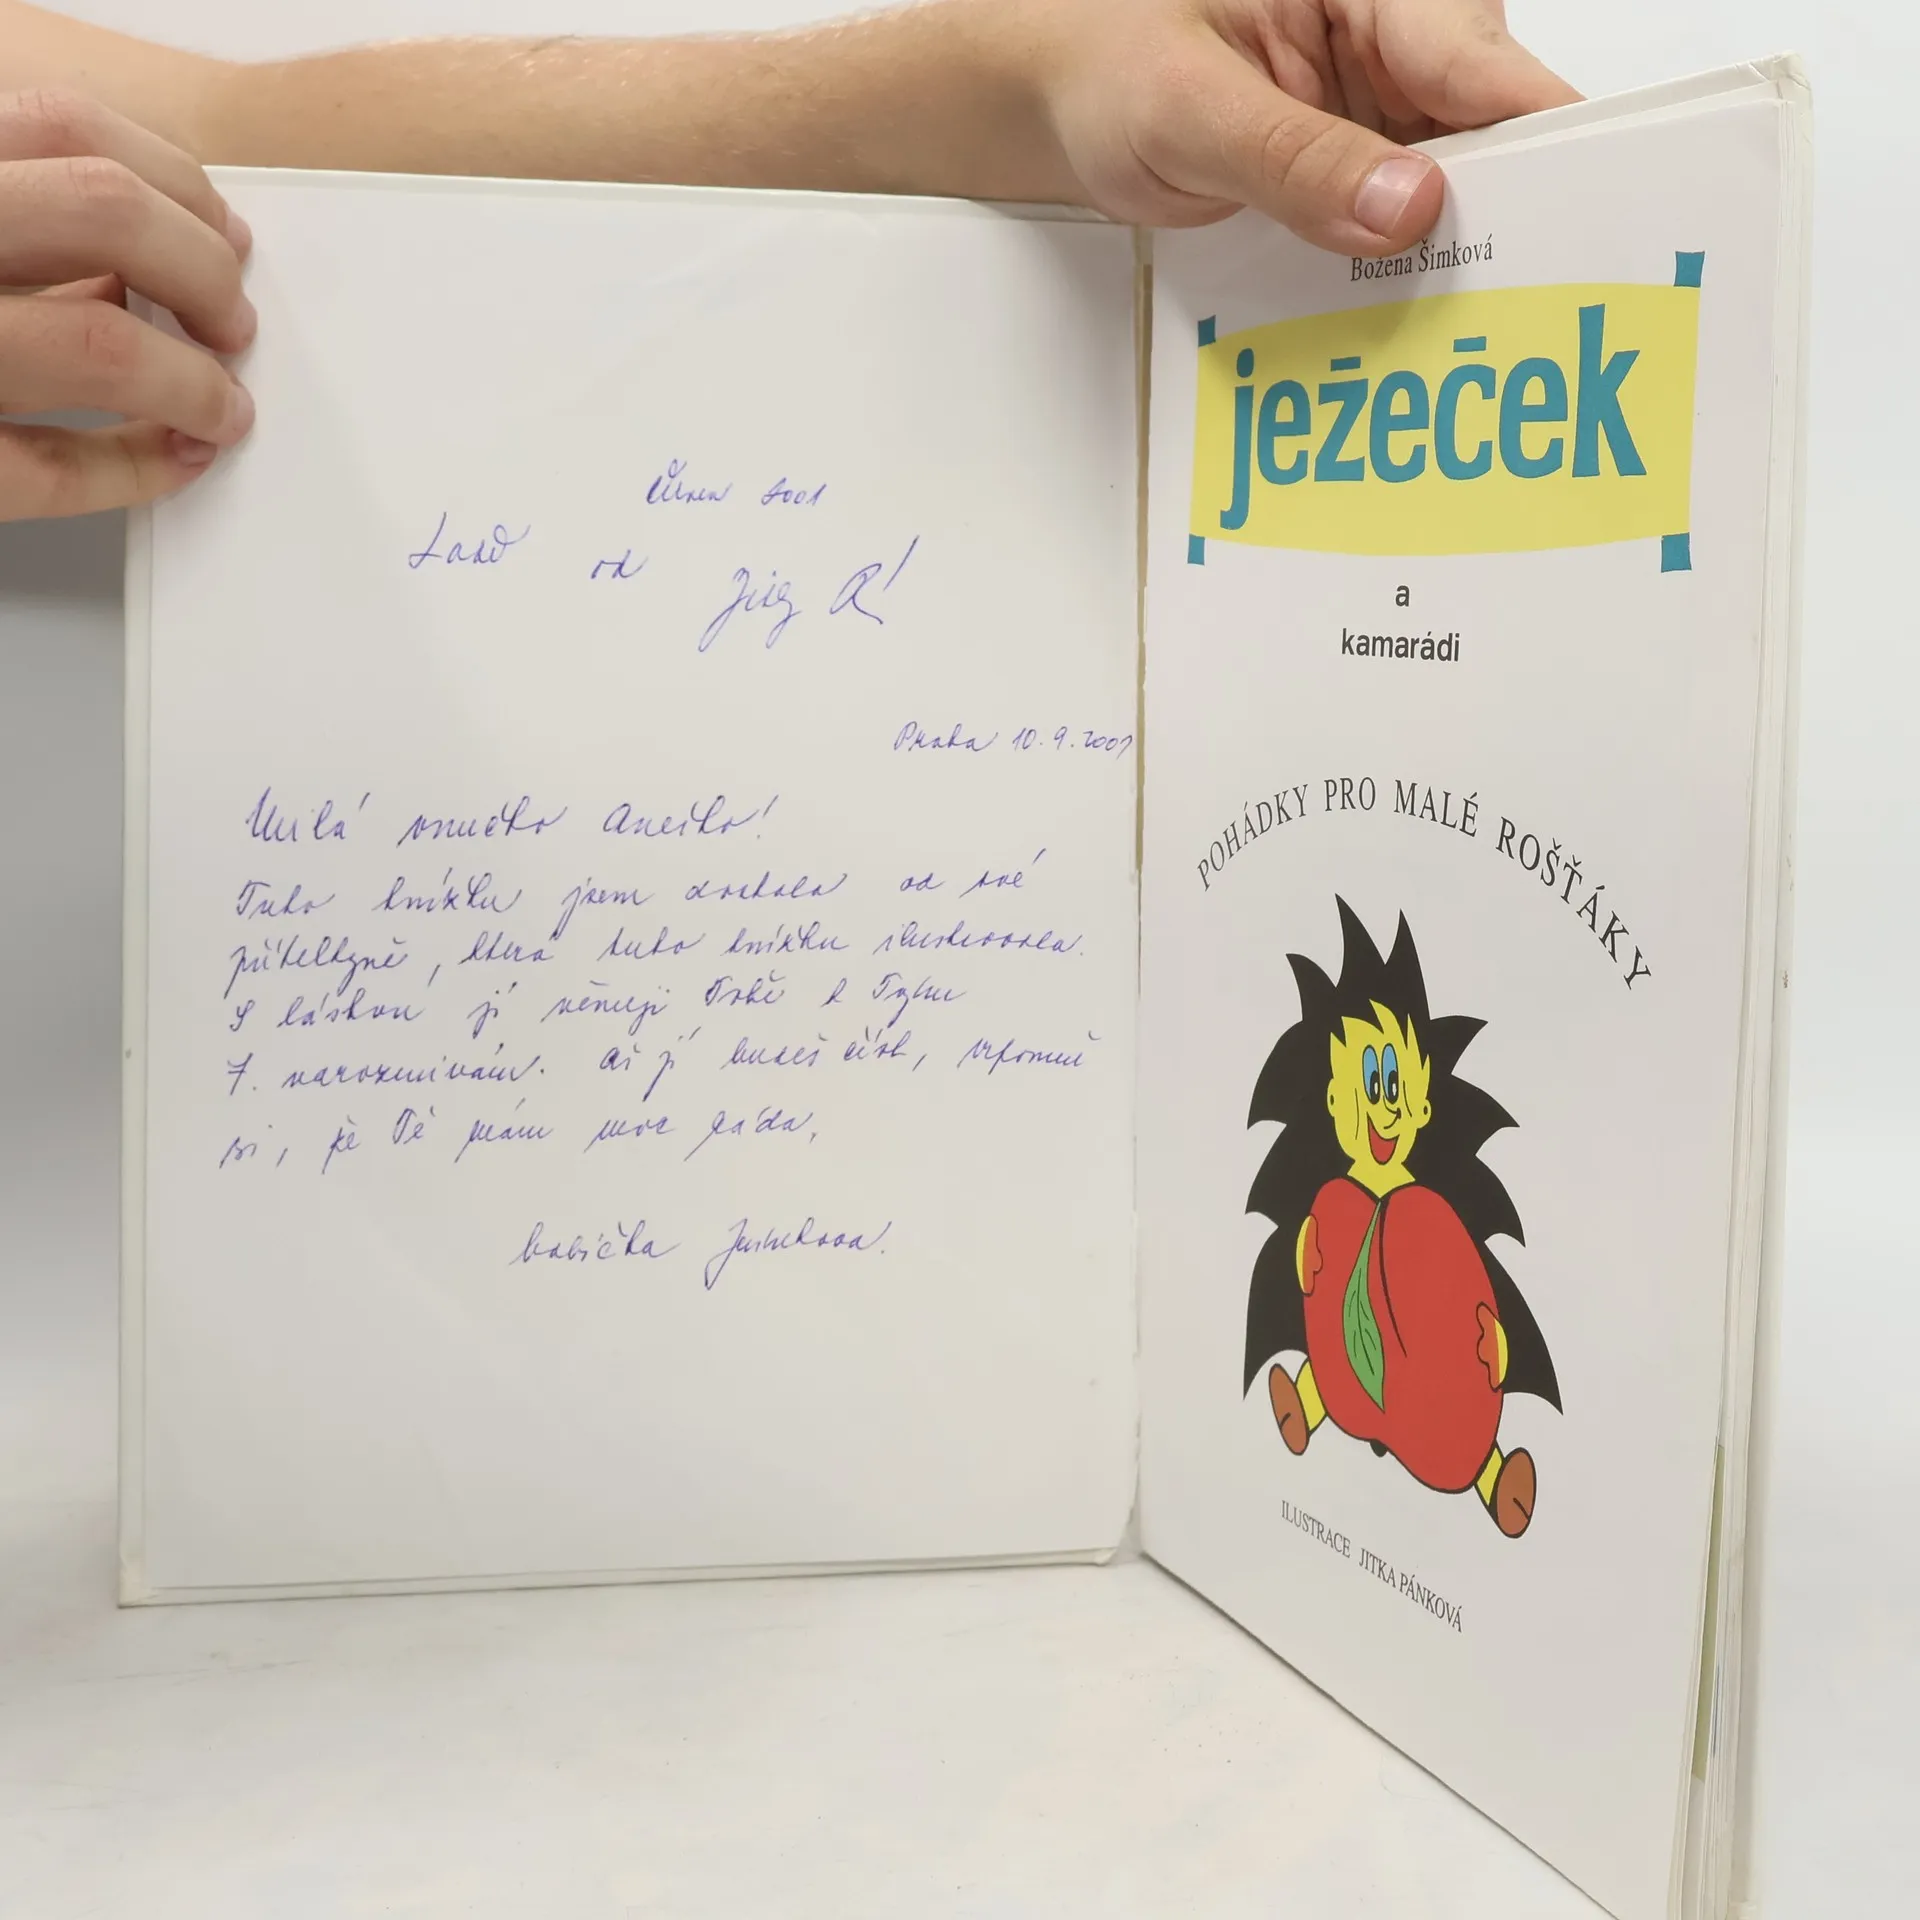 Červen 2001
od
Praha 10.9.2001
Milá vnučko Anečko!
Tuto knížku jsem dostala od své
přítelkyně, která tuto knížku ilustrovala.
S láskou jí věnuji Tobě k Tvým
7. narozeninám. Až jí budeš číst, vzpomeň
si, že Tě mám moc ráda,
babička
Božena Šimková
ježeček
a
kamarádi
POHÁDKY PRO MALÉ ROŠŤÁKY
ILUSTRACE JITKA PÁNKOVÁ